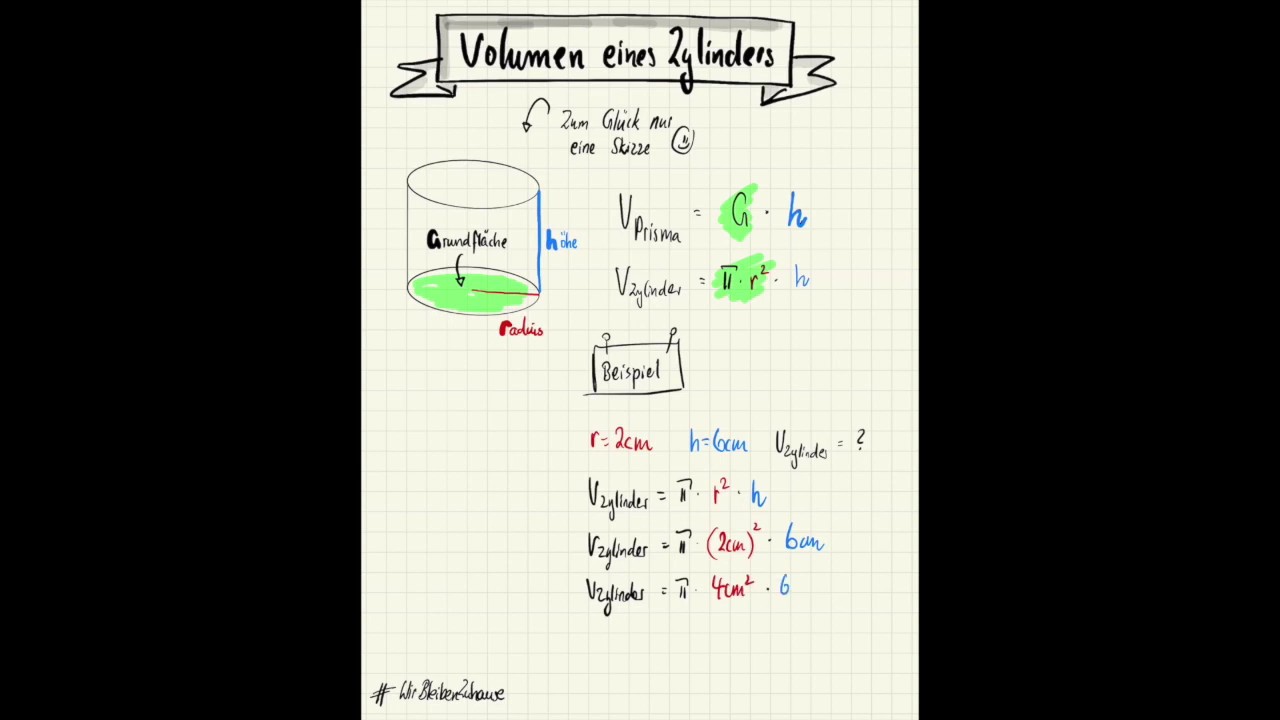 Volumen eines Zylinders
Zum Glück nur
eine Skizze
Grundfläche
höhe
radius
V_Prisma = G · h
V_Zylinder = π · r² · h
Beispiel
r = 2cm h = 6cm V_Zylinder = ?
V_Zylinder = π · r² · h
V_Zylinder = π · (2cm)² · 6cm
V_Zylinder = π · 4cm² · 6
#WirBleibenZuhause